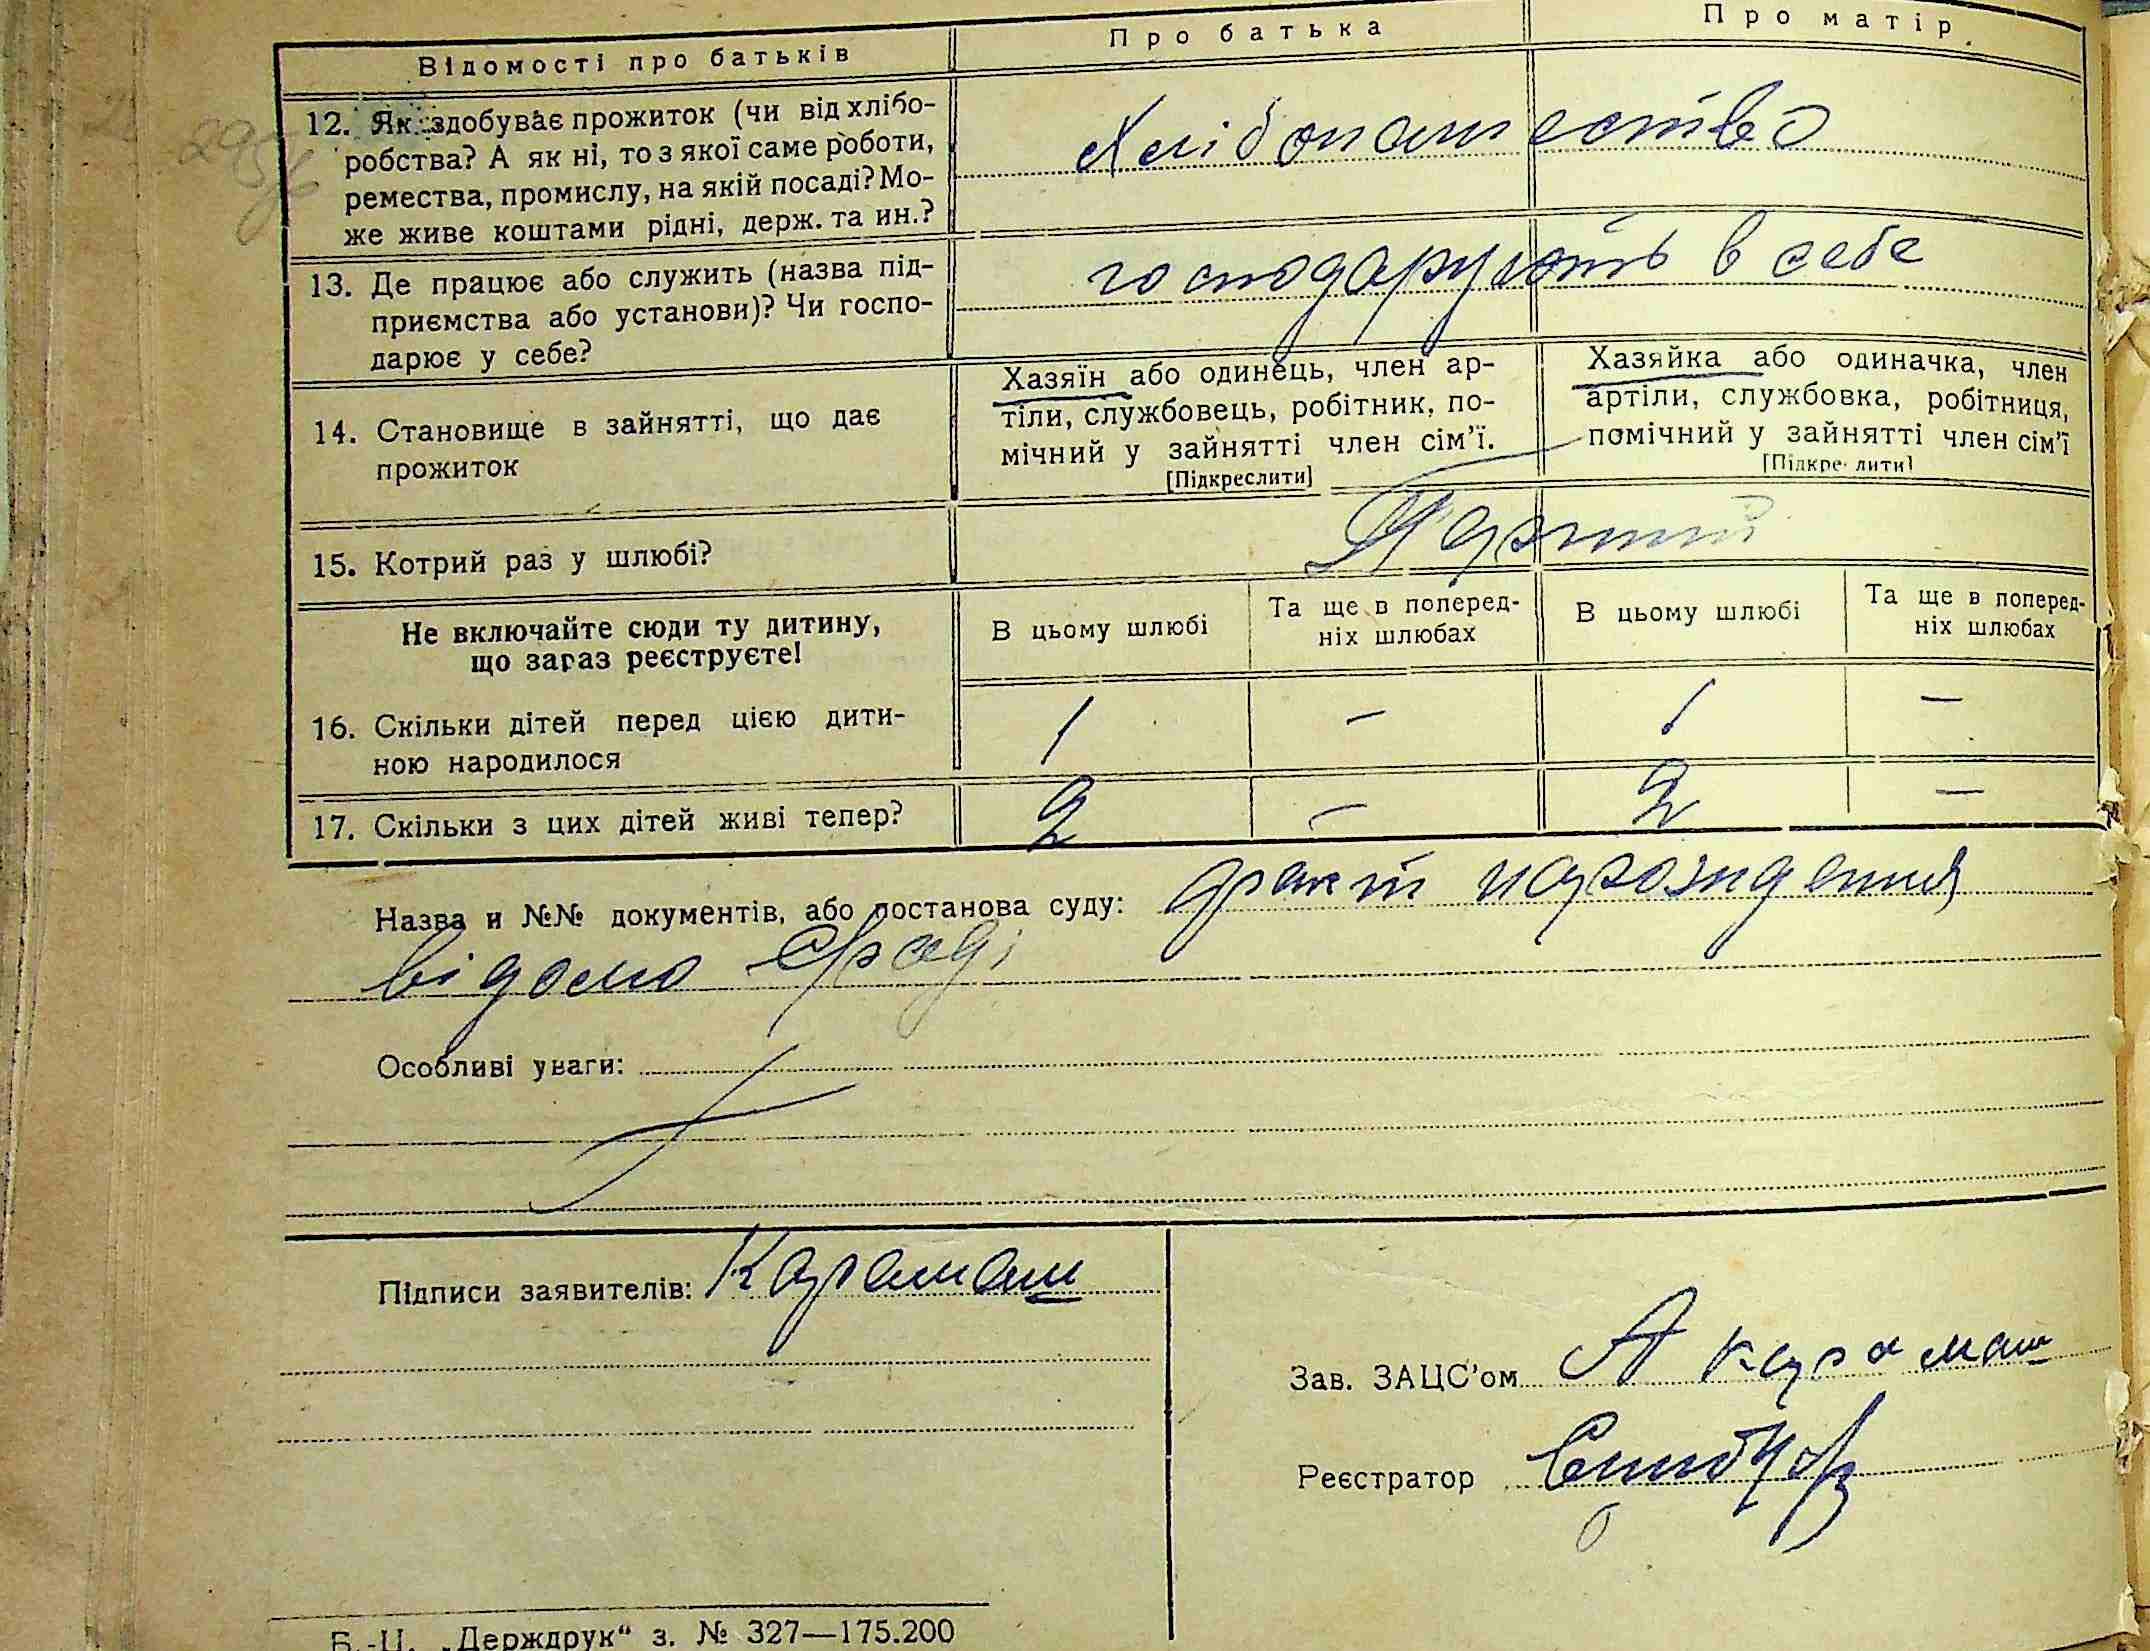 Відомості про батьків
Про батька
Про матір
12. Як здобуває прожиток (чи від хлібо-
робства? А як ні, то з якої саме роботи,
ремества, промислу, на якій посаді? Мо-
же живе коштами рідні, держ. та ин.?
Хлібопашество
13. Де працює або служить (назва під-
приємства або установи)? Чи госпо-
дарює у себе?
господарують в себе
14. Становище в зайнятті, що дає
прожиток
Хазяїн або одинець, член ар-
тіли, службовець, робітник, по-
мічний у зайнятті член сім'ї.
[Підкреслити]
Хазяйка або одиначка, член
артіли, службовка, робітниця,
помічний у зайнятті член сім'ї
[Підкре лити]
15. Котрий раз у шлюбі?
Перший
Не включайте сюди ту дитину,
що зараз реєструєте!
В цьому шлюбі
Та ще в поперед-
ніх шлюбах
В цьому шлюбі
Та ще в поперед-
ніх шлюбах
16. Скільки дітей перед цією дити-
ною народилося
1 — 1 —
17. Скільки з цих дітей живі тепер?
2 — 2 —
Назва и №№ документів, або постанова суду: факт народження
відомо с/раді
Особливі уваги:
Підписи заявителів: Карамаш
Зав. ЗАЦС'ом А Карамаш
Реєстратор
Б.-Ц. „Держдрук“ з. № 327—175.200